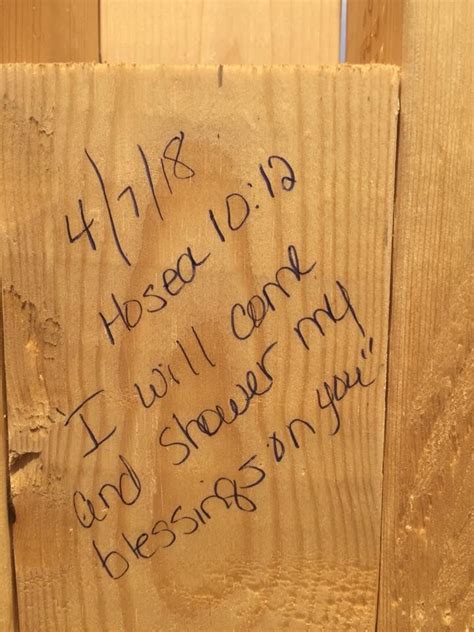 4/7/18
Hosea 10:12
"I will come
and shower my
blessings on you"